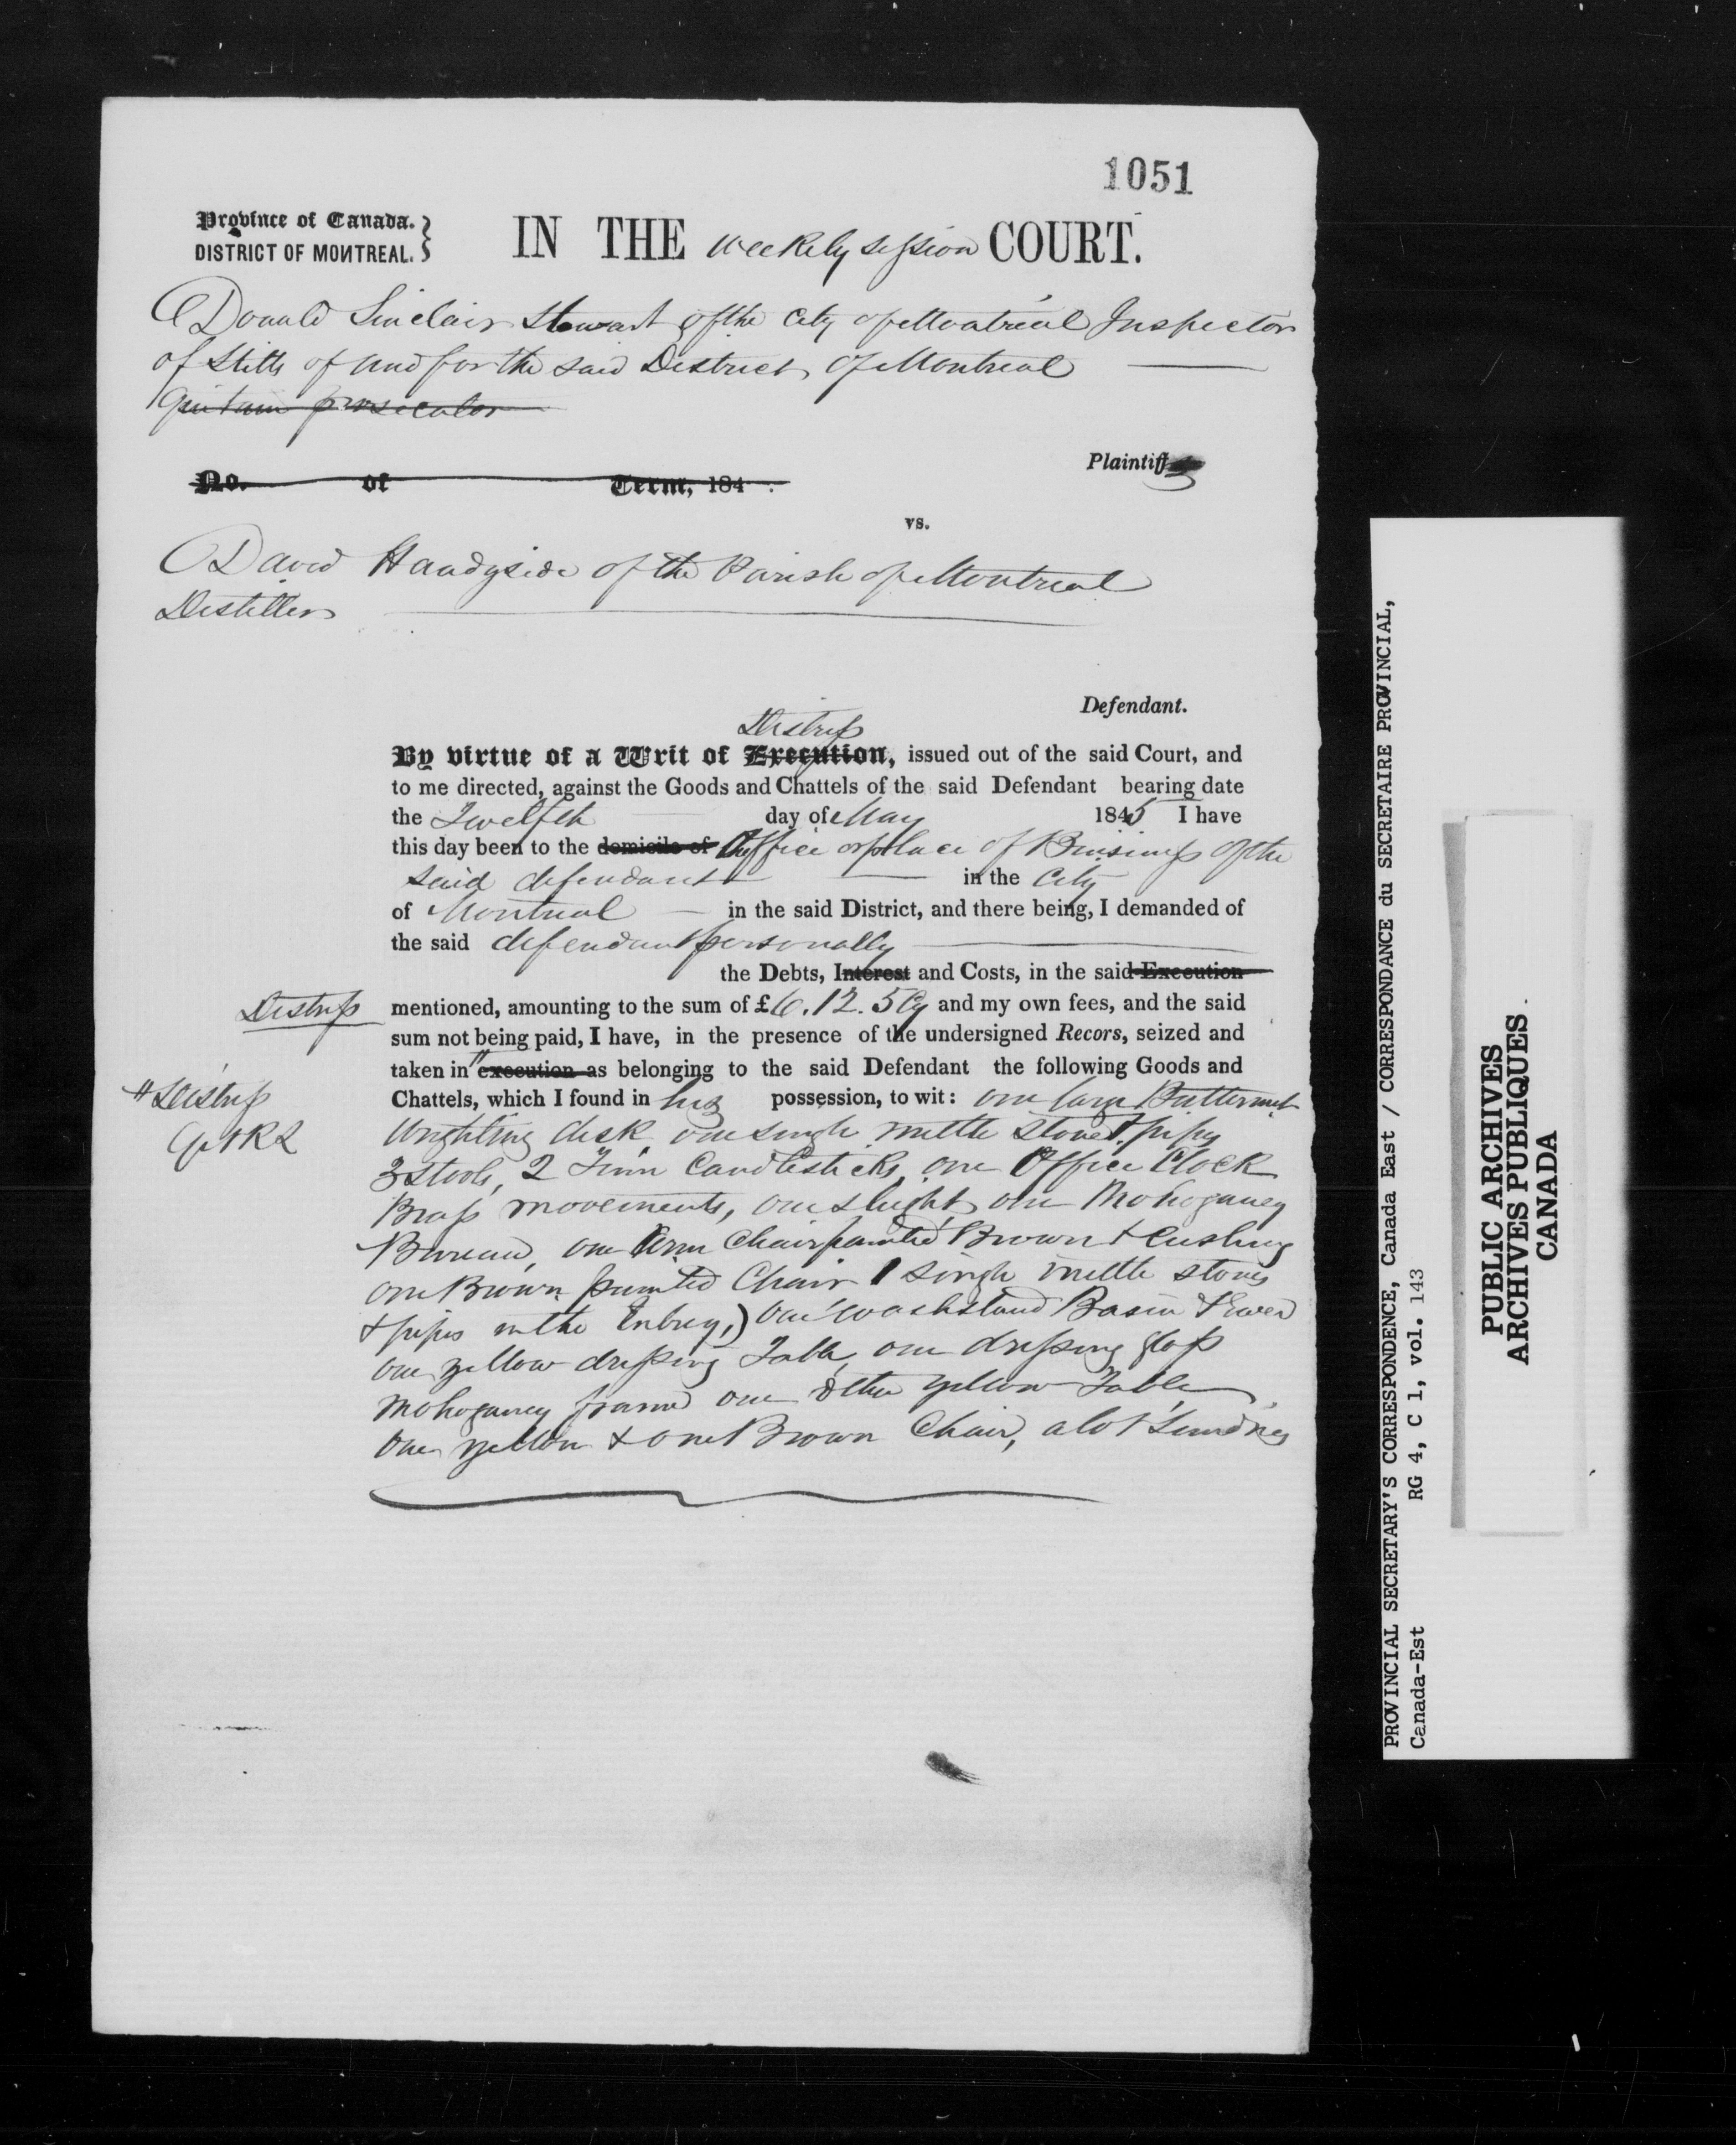 1051
Province of Canada.
DISTRICT OF MONTREAL.
IN THE Weekly Session COURT.
Donald Sinclair Stewart of the City of Montreal Inspector
of Stills of and for the said District of Montreal
Quitam prosecutor
Plaintiff
No. of Term, 184 .
vs.
David Handyside of the Parish of Montreal
Distiller
Defendant.
Distress
By virtue of a Writ of Execution, issued out of the said Court, and
to me directed, against the Goods and Chattels of the said Defendant bearing date
the Twelfth day of May 1845 I have
this day been to the domicile of Office or place of Buisiness of the
said defendant in the City
of Montreal in the said District, and there being, I demanded of
the said defendant personally
the Debts, Interest and Costs, in the said Execution
Distress mentioned, amounting to the sum of £6.12.5 Cy and my own fees, and the said
sum not being paid, I have, in the presence of the undersigned Recors, seized and
taken in execution as belonging to the said Defendant the following Goods and
Distress
Chattels, which I found in his possession, to wit: one large Butternut
Wrighting desk, one single mettle stove & pipes
3 stools, 2 Tinn Candlesticks, one Office Clock
Brass movements, one one Mohoganey
Bureau, one Arm Chair painted Brown & Cushing
one Brown painted Chair 1 single mettle stoves
& pipes in the Entrey,) one washstand Basin & Ewer
one yellow dressing Table, one dressing glass
Mohoganey frame one other yellow Table
One yellow & one Brown Chair, a lot Sundries
PROVINCIAL SECRETARY'S CORRESPONDENCE, Canada East / CORRESPONDANCE du SECRETAIRE PROVINCIAL,
Canada-Est RG 4, C 1, vol. 143
PUBLIC ARCHIVES
ARCHIVES PUBLIQUES
CANADA